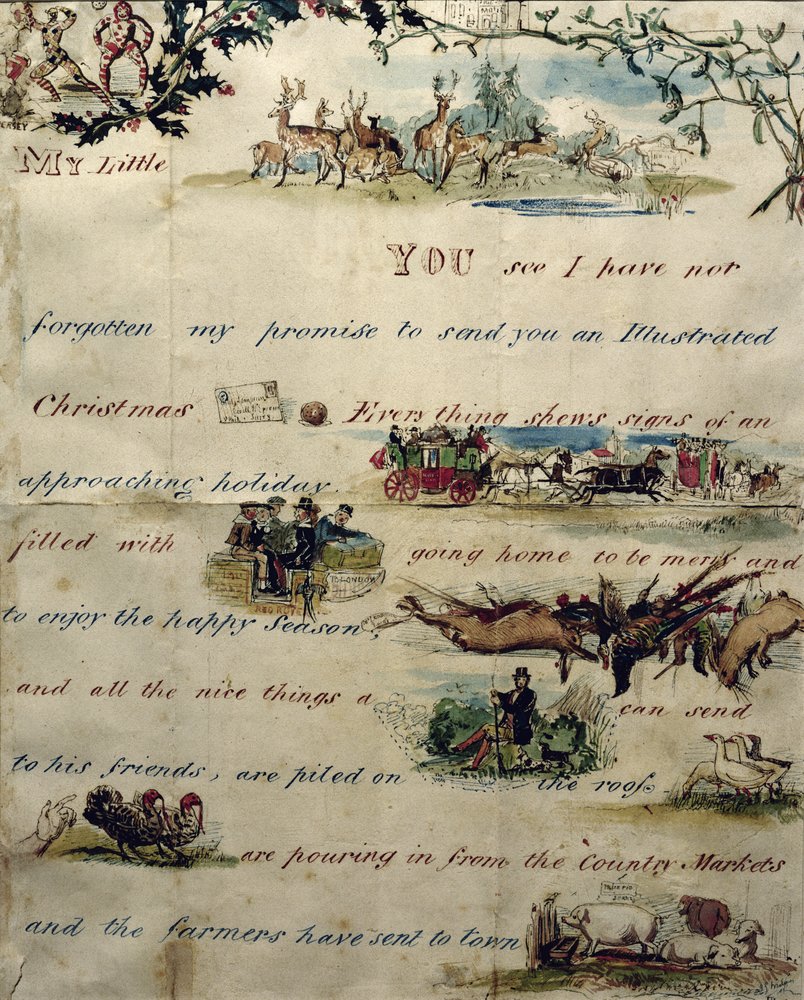 My Little
YOU see I have not
forgotten my promise to send you an Illustrated
Christmas Every thing shews signs of an
approaching holiday.
filled with going home to be merry and
TO LONDON
RED ROVER
to enjoy the happy Season,
and all the nice things a can send
to his friends, are piled on the roof
are pouring in from the Country Markets
and the farmers have sent to town